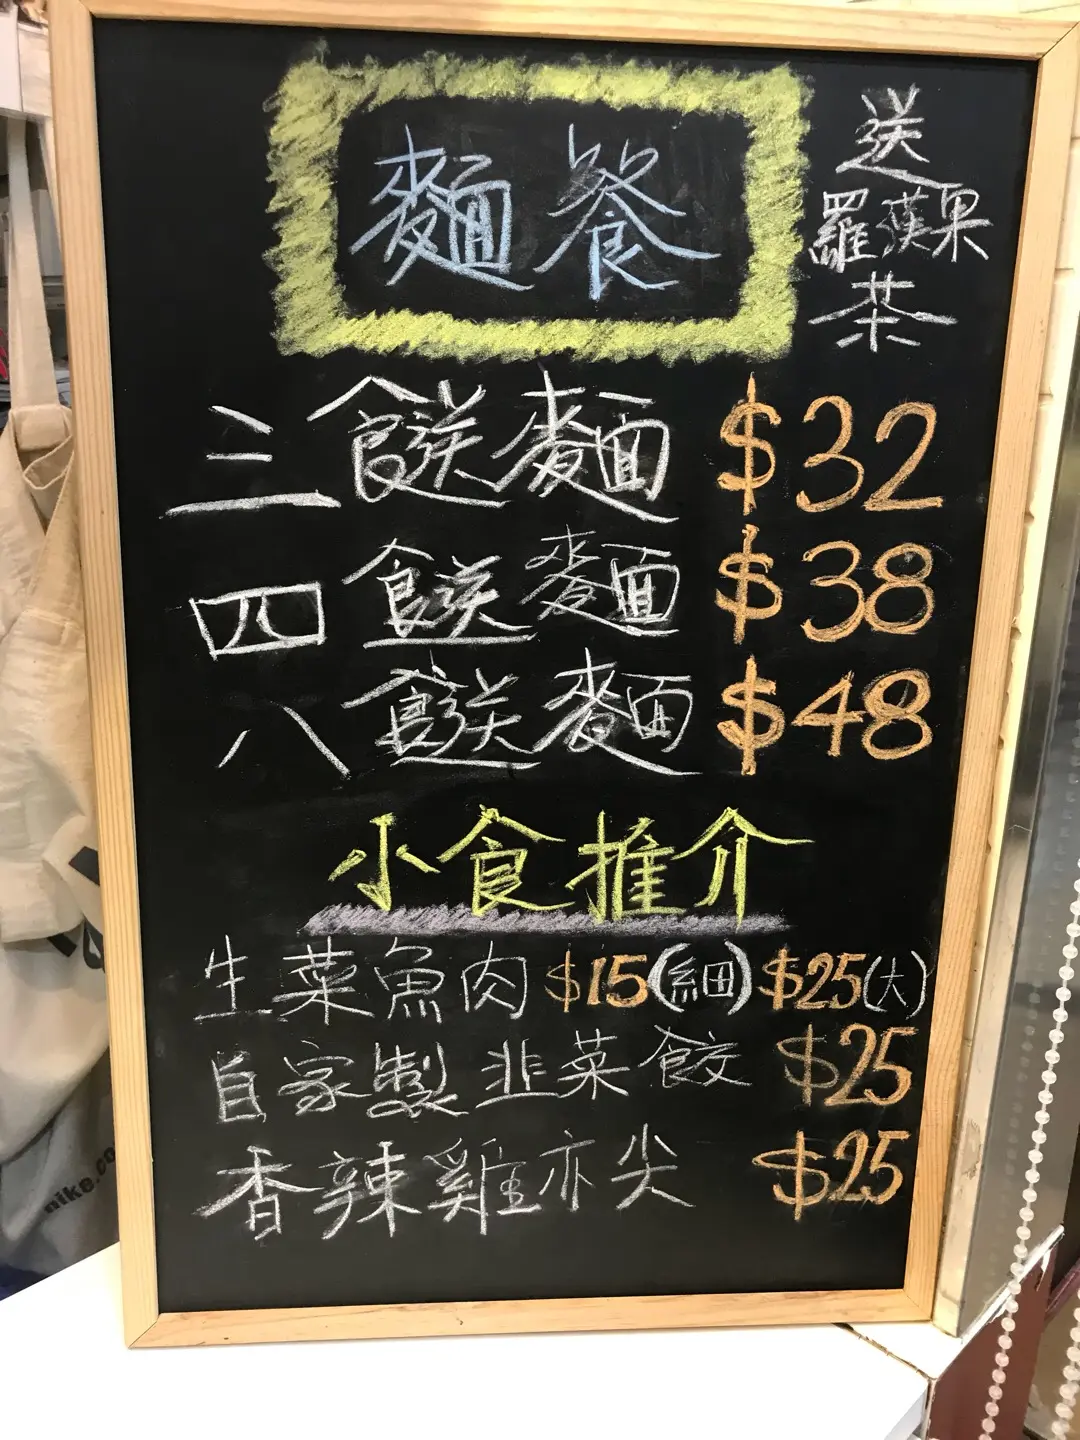 麵餐
送
羅漢果
茶
三餸麵 $32
四餸麵 $38
八餸麵 $48
小食推介
生菜魚肉 $15(細) $25(大)
自家製韭菜餃 $25
香辣雞亦尖 $25
nike.co